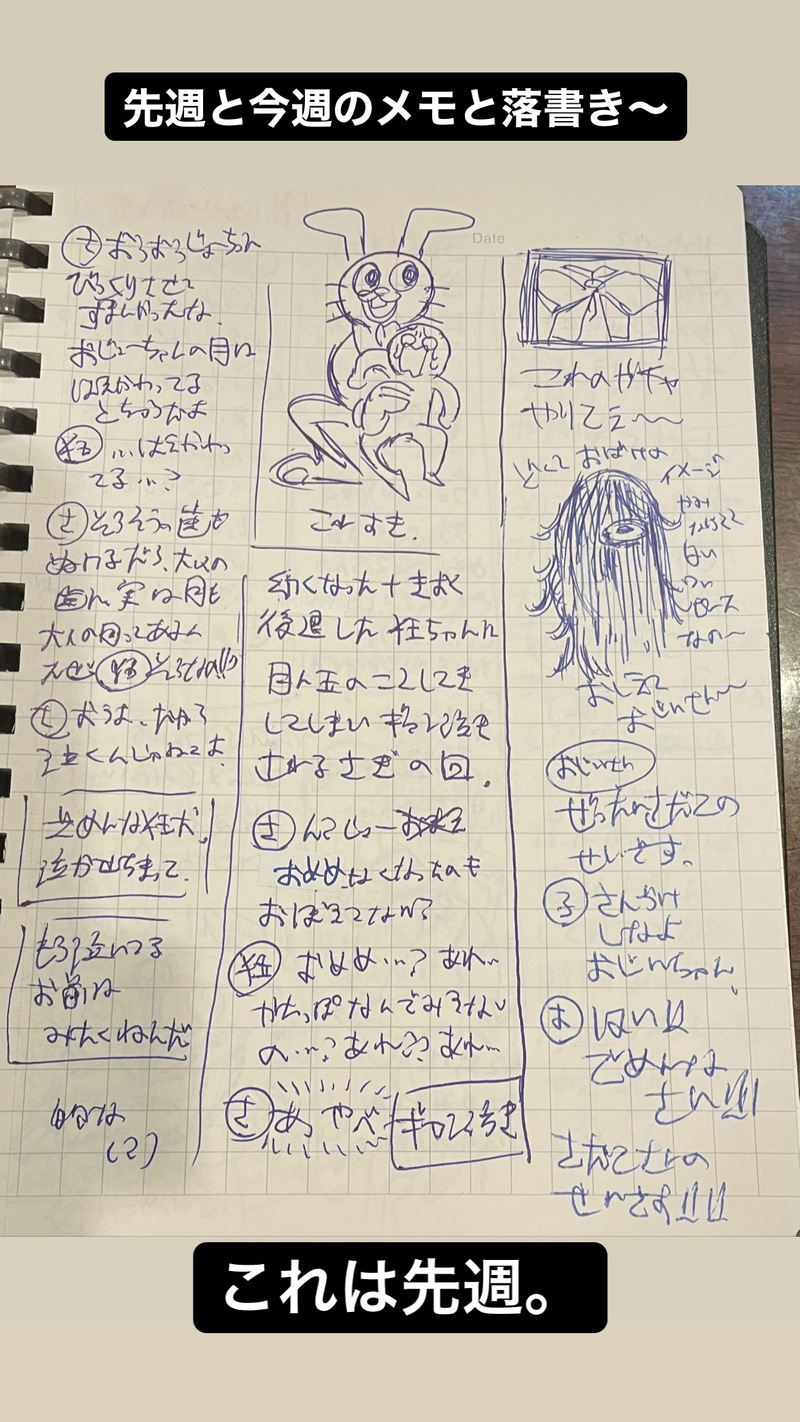 先週と今週のメモと落書き〜
Date
さ おうおうじょーちゃん
びっくりさせて
すまんかったな
おじょーちゃんの目は
はえかわってる
とちゅうだよ
狂 …はえかわっ
てる…?
さ そろそろ歯も
ぬけるだろ、大人の
歯に、実は目も
大人の目ってあるん
だぜ 狂 そうなの!!?
さ おうよ、だから
泣くんじゃねえよ
泣かせちまって.
もう泣いてる
お前は
みたくねんだ
的な
これすき.
幼くなった+きおく
後退した狂ちゃんに
目ん玉のことしてき
してしまいギャン泣き
されるさぎの回.
さ んてじょー
おめめなくなったのも
おぼえてない?
狂 おめめ…? あれ…
かたっぽなんでみえない
の…? あれ?? あれ…
さ あっ やべ ギャン泣き
これのガチャ
やりてぇ〜〜
おばけの
イメージ
かみ
はい
なの〜
おしえて
おじいさん〜
おじいさん
ぜったいさだこの
せいです。
子 さんづけ
しなよ
おじいちゃん、
お はい!!
ごめんな
さい!!!
さだこさんの
せいです!!!!
これは先週。